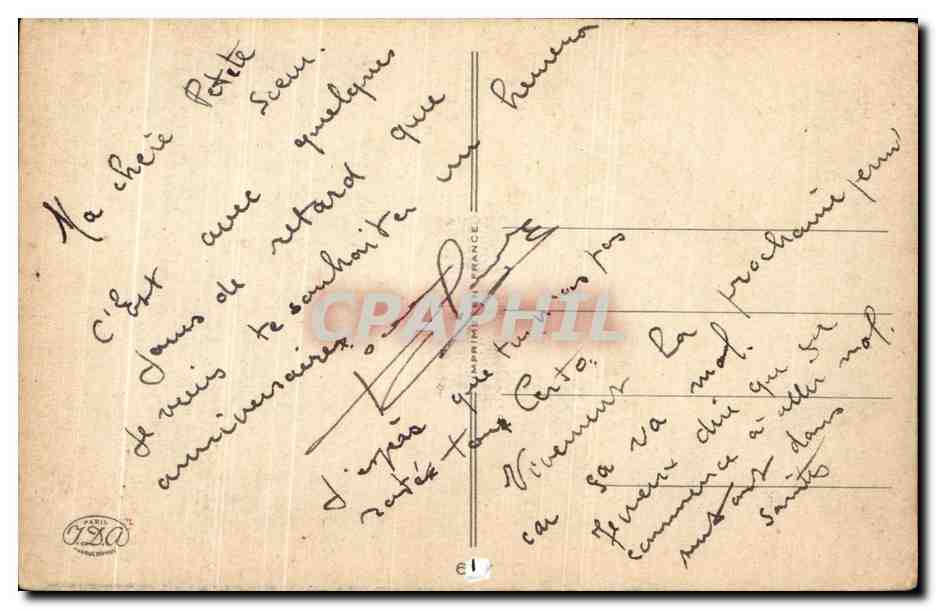 Ma chère Petite
Soeur.
C'Est avec quelques
jours de retard que
Je viens te souhaiter un heureux
anniversaire.
J'espès que tu n'as pas
ratée ton Certo.
Vivement La prochaine perm
car sa va mal.
Je veux dire que sa
commence à aller mal.
surtout dans
IMPRIMÉ EN FRANCE
CPAPHIL
PARIS
I.D.A
6 1